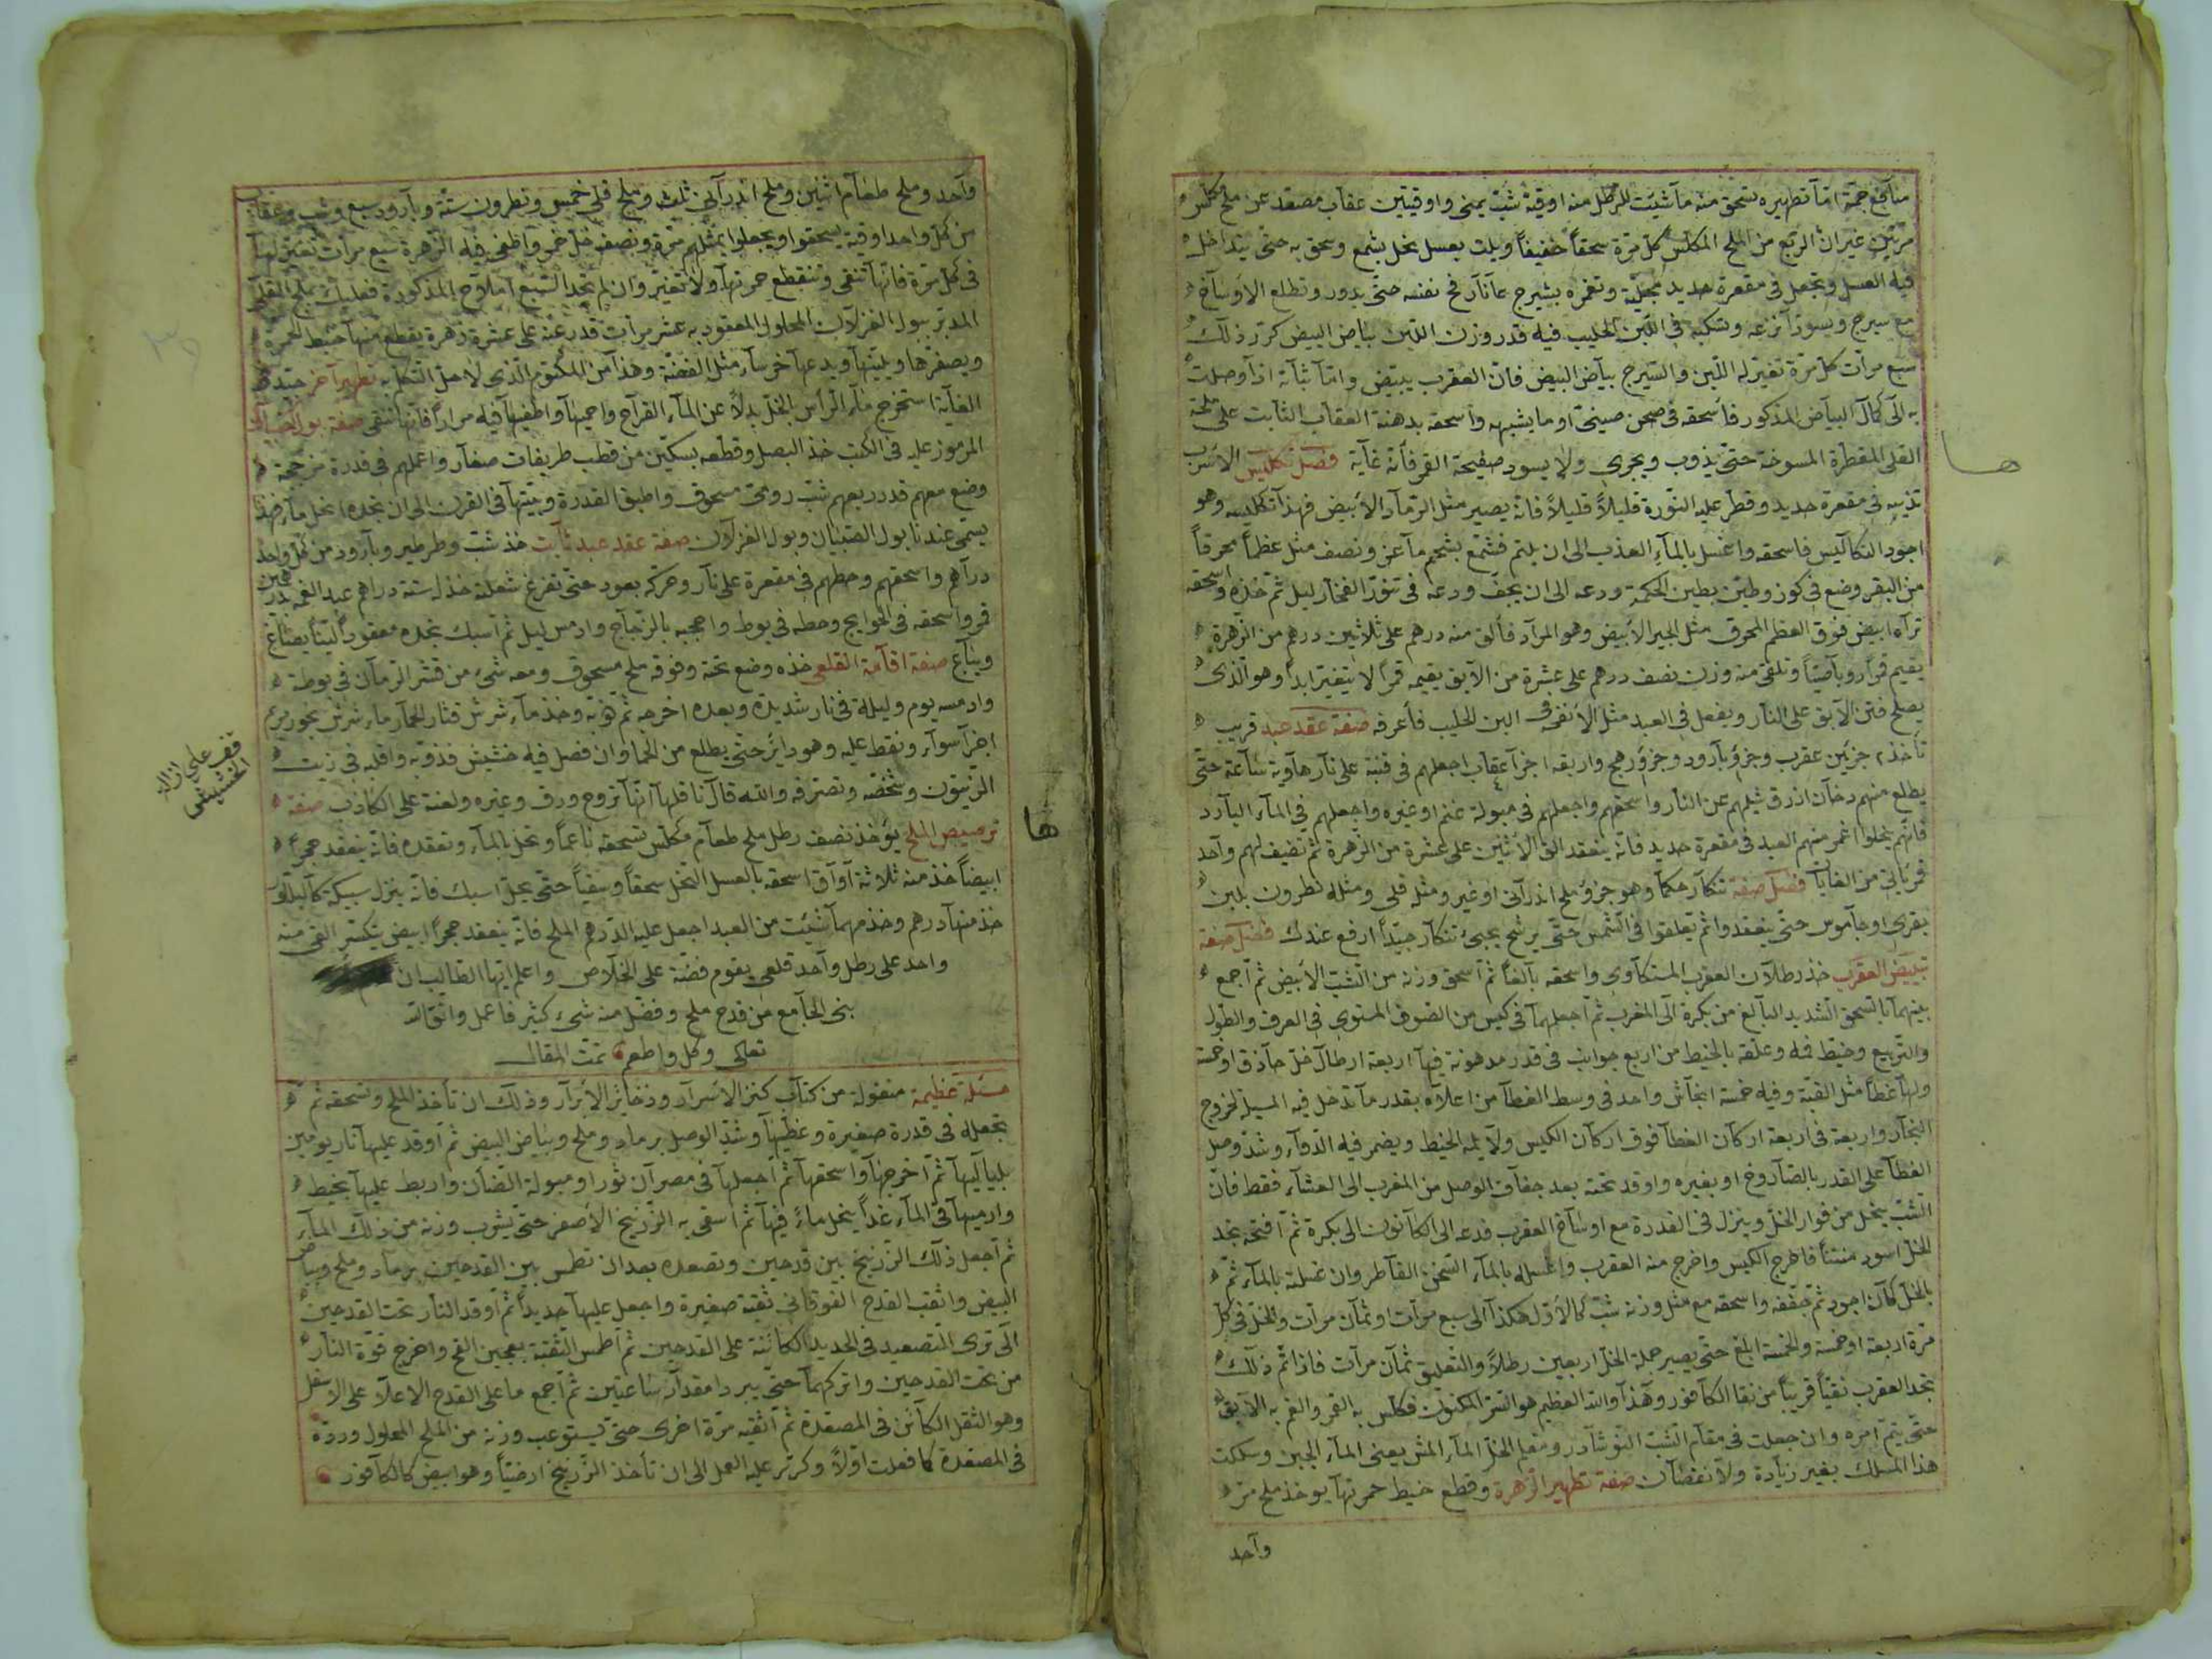 منافع جمة اما تطهيره تسحق منه ما شئت للرطل منه اوقية شب يمنى واوقيتين عقاب مصعد عن ملح مكلس
مرتين غير ان الربع من الملح المكلس كل مرة سحقاً خفيفاً ويلت بعسل نحل بشمع وسحق به حتى يتداخل
فيه العسل وتجعل فى مقعرة حديد مجلية وتغمره بشيرج عا نار فح نفسه حتى يدور وتطلع الاوساخ
مع سيرج ويسود انزعه وشكبه فى اللبن الحليب فيه قدر وزن اللبن بياض البيض كرر ذلك
سبع مرات كل مرة تغيير له اللبن والشيرج بياض البيض فان العقرب يبيض واما ثباته اذا وصلت
به الى كمال البياض المذكور فاسحقه فى صحن صينى او ما يشبهه واسحقه بدهنة العقاب الثابت على ملحة
القلى المقطرة المسوخة حتى يذوب ويجرى ولا يسود صفيحة القمر فانه غاية فصل تكليس الاسرب
تذيبه فى مقعرة حديد وقطر عليه النورة قليلاً قليلاً فانه يصير مثل الرماد الابيض فهذا تكليسه وهو
اجود التكاليس فاسحقه واغسل بالماء العذب الى ان يلتم فشمع بشحم ماعز ونصف مثل عظماً محرقاً
من البقر وضع فى كوز وطين بطين الحكمة ودعه الى ان يجف ودعه فى تنور الفخار ليل ثم خذه واسحقه
تراه ابيض فوق العظم المحرق مثل الجير الابيض وهو المراد فألق منه درهم على ثلاثين درهم من الزهرة
يقيم قمراً روباصياً وتلقى منه وزن نصف درهم على عشرة من الآبق يقيمه قمراً لا يتغير ابداً وهو الذى
يصلح فتن الآبق على النار ويفعل فى العبد مثل الانفحه فى البن الحليب فأعرفه صفة عقد عبد قريب
تأخذ جزئين عقرب وجزؤ بارود وجزؤ رهج واربعة اجزا عقاب اجعلهم فى قنينة على نار هاوية ساعة حتى
يطلع منهم دخان ازرق شيلهم عن النار واسحقهم واجعلهم فى مبولة غنم او غيره واجعلهم فى الماء البارد
فانهم ينحلوا اغمر منهم العبد فى مقعرة حديد فانه ينعقد الق الاثنين على عشرة من الزهرة ثم تضيف لهم واحد
قمر يأتى من الغايات فصل صفة تنكار حكماً وهو جزؤ ملح اندرانى او غير ومثله قلى ومثله نطرون بلبن
بقرى او جاموس حتى ينعقدوا ثم يعلقوا فى الشمس حتى يرشح يجئ تنكار جيداً ارفع عندك فصل صفة
تبييض العقرب خذ رطلان العقرب المستكاوى واسحقه بالغاً ثم اسحق وزنه من الشب الابيض ثم اجمع
بينهما بالسحق الشديد البالغ من بكرة الى المغرب ثم اجعلهما فى كيس من الصوف المستوى فى العرف والطول
والتربيع وخيط فمه وعلقه بالخيط من اربع جوانب فى قدر مدهونة فيها اربعة ارطال خل حاذق او خمسة
ولها غطاً مثل القبة وفيه خمسة ابخاش واحد فى وسط الغطا من اعلاه بقدر ما تدخل فيه المسلة لخروج
البخار واربعة فى اربعة اركان الغطا فوق اركان الكيس ولا يمه الخيط ويضمر فيه الدواء وشد وصل
الغطا على القدر بالصاروخ او بغيره واوقد تحته بعد جفاف الوصل من المغرب الى العشاء فقط فان
الشب ينحل من فوار الخل وينزل فى القدرة مع اوساخ العقرب فدعه الى الكانون الى بكرة ثم افتحه تجد
الخل اسود منتناً فاطرح الكيس واخرج منه العقرب واغسله بالماء السخن القاطر وان غسلته بالماء ثم
بالخل كان اجود ثم جففه واسحقه مع مثل وزنه شب كالاول هكذا الى سبع مرات او ثمان مرات والخل فى كل
مرة اربعة او خمسة والخمسة ابلغ حتى يصير جملة الخل اربعين رطلاً والتعليق ثمان مرات فاذا تم ذلك
تجد العقرب نقياً قريباً من نقا الكافور وهذا والله العظيم هو السر المكنون فكلس به القمر والغم به الآبق
حتى يتم امره وان جعلت فى مقام الشب النوشادر ومقام الخل الماء المش يعنى الماء الجبن وسلكت
هذا المسلك بغير زيادة ولا نقصان صفة تطهير الزهرة وقطع خيط حمرتها يوخذ ملح مر
واحد
ها
واحد وملح طعام اثنين وملح اندرانى ثلث وملح قلى خمس ونطرون ستة وبارود سبع وشب وعقاب
من كل واحد اوقية يسحقوا ويجعلوا بمثلهم مرة ونصف خل خمر واطفى فيه الزهرة سبع مرات تغيير لها
فى كل مرة فانها تنقى وتنقطع حمرتها ولا تتغير وان لم تجد السبع املاح المذكورة فعليك بملح القلى
المدبر ببول الغزلان المحلول المعقود به عشر مرات قدر عنه على عشرة زهرة يقطع منها خيط الحمرة
ويصفرها ويلينها ويدعها خرساء مثل الفضة وهذا من المكتوم الذى لاحل التكا به تطهير آخر جيد فى
الغاية استخرج ماء الرأس الخل بدلاً عن الماء القراح واحميها واطفيها فيه مراراً فانها تنقى صفة بول الصبيان
المرموز عليه فى الكتب خذ البصل وقطعه بسكين من قطب طريفات صغار واعملهم فى قدرة مزججة
وضع معهم قدر ربعهم شب رومى مسحوق واطبق القدرة وبيتها فى الفرن الى ان تجده انحل ماء فهذا
يسمى عندنا بول الصبيان وبول الغزلان صفة عقد عبد ثابت خذ شب وطرطير وبارود من كل واحد درهمين
دراهم واسحقهم وحطهم فى مقعرة على نار وحركه بعود حتى تفرغ شعلته خذ له ستة دراهم عبد القمه
قمر واسحقه فى الحوايج وحطه فى بوط واحجبه بالزجاج وادمس ليل ثم اسبك تجده معقوداً لينا يصاغ
ويباع صفة اقامة القلعى خذه وضع تحته وفوقه ملح مسحوق ومعه شئ من قشر الرمان فى بوطة
وادمسه يوم وليلة فى نار شديدة وبعده اخرجه ثم ذوبه وخذ ماء شرش قثار الحمار ماء شرش بخور مريم
اجزآ سوآء ونقط عليه وهو داير حتى يطلع من الحما وان فضل فيه خشيش فذوبه واقلبه فى زيت
الزيتون وشخصه وتصرفه والله قال ناقلها انها تروج ورق وغيره ولعنة على الكاذب صفة
ترصيص الملح يؤخذ نصف رطل ملح طعام مكلس تسحقه ناعماً وتحل بالماء وتعقده فانه ينعقد حجراً
ابيضاً خذ منه ثلاثة آواق اسحقه بالعسل النحل سحقاً وسقياً حتى يحل اسبك فانه ينزل سبيكة كالبلور
خذ منها درهم وخذ مهما شئت من العبد اجعل عليه الدرهم الملح فانه ينعقد حجراً ابيض يتكسر القى منه
واحد على رطل واحد قلعى يقوم فضة على الخلاص واعلم ايها الطالب ان
بنى الجامع من قدح ملح وفضل منه شئ كثير فاعمل واتق الله
تعالى وكل واطعم تمت المقال
مسئلة عظيمة منقولة من كتاب كنز الاسرار وذخاير الابرار وذلك ان تأخذ الملح وتسحقه ثم
تجعله فى قدرة صغيرة وغطيها وشد الوصل برماد وملح وبياض البيض ثم اوقد عليها نار يومين
بلياليها ثم اخرجها واسحقها ثم اجعلها فى مصران ثور او مبولة الضان واربط عليها بخيط
وارميها فى الماء غداً ينحل ماءً فيها ثم اسقى به الزرنيخ الاصفر حتى يشرب وزنه من ذلك الماء
ثم اجعل ذلك الزرنيخ بين قدحين وتصعده بعد ان تطمس بين القدحين برماد وملح وبياض
البيض واثقب القدح الفوقانى ثقبة صغيرة واجعل عليها حديداً ثم اوقد النار تحت القدحين
الى ترى التصعيد فى الحديد الكائنة على القدحين ثم اطمس الثقبة بعجين القمح واخرج قوة النار
من تحت القدحين واتركهما حتى يبردا مقدار ساعتين ثم اجمع ما على القدح الاعلا على الاسفل
وهو الثفل الكائن فى المصعدة ثم اسقيه مرة اخرى حتى يستوعب وزنه من الملح المحلول ورده
فى المصعدة كما فعلت اولاً وكرر عليه العمل الى ان تأخذ الزرنيخ ارضياً وهو ابيض كالكافور
قف على ازالة
الخشيش
ها